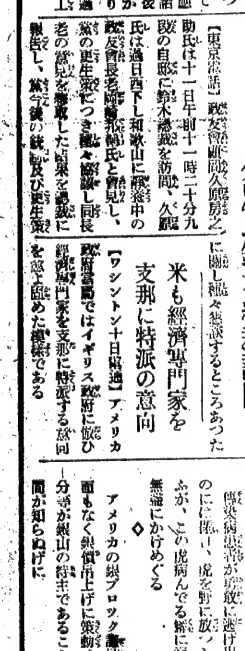 【東京電話】政友會顧問久原房之
助氏は十一日午前十一時二十分九
段の自邸に鈴木總裁を訪問、久原
氏は過日西下し和歌山に靜養中の
政友會長老岡崎邦輔氏と會見し、
黨の更生策につき種々協議し同長
老の意見を聽取した結果を總裁に
報告し、黨今後の統制及び更生策
に關し種々懇談するところあつた
米も經濟專門家を
支那に特派の意向
【ワシントン十日國通】アメリカ
政府當局ではイギリス政府に倣ひ
經濟專門家を支那に特派する意向
を愈々固めた模樣である
傳染病患者が
のには閉口、虎を野に放つ
ふが、この虎病んでる癖に
にかけめぐる
◇
アメリカの銀ブロック
面もなく銀價吊上げに策動
分等が銀山の持主であるこ
間が知らぬげに